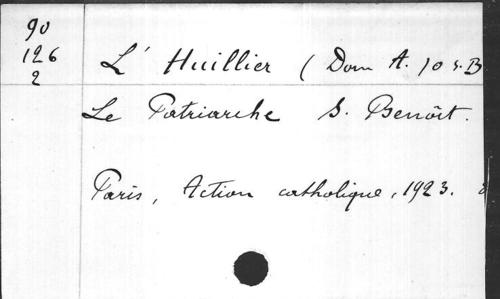 90
126
2
L' Huillier ( Dom A. ) O S. B
Le Patriarche S. Benoît.
Paris, Action catholique, 1923.